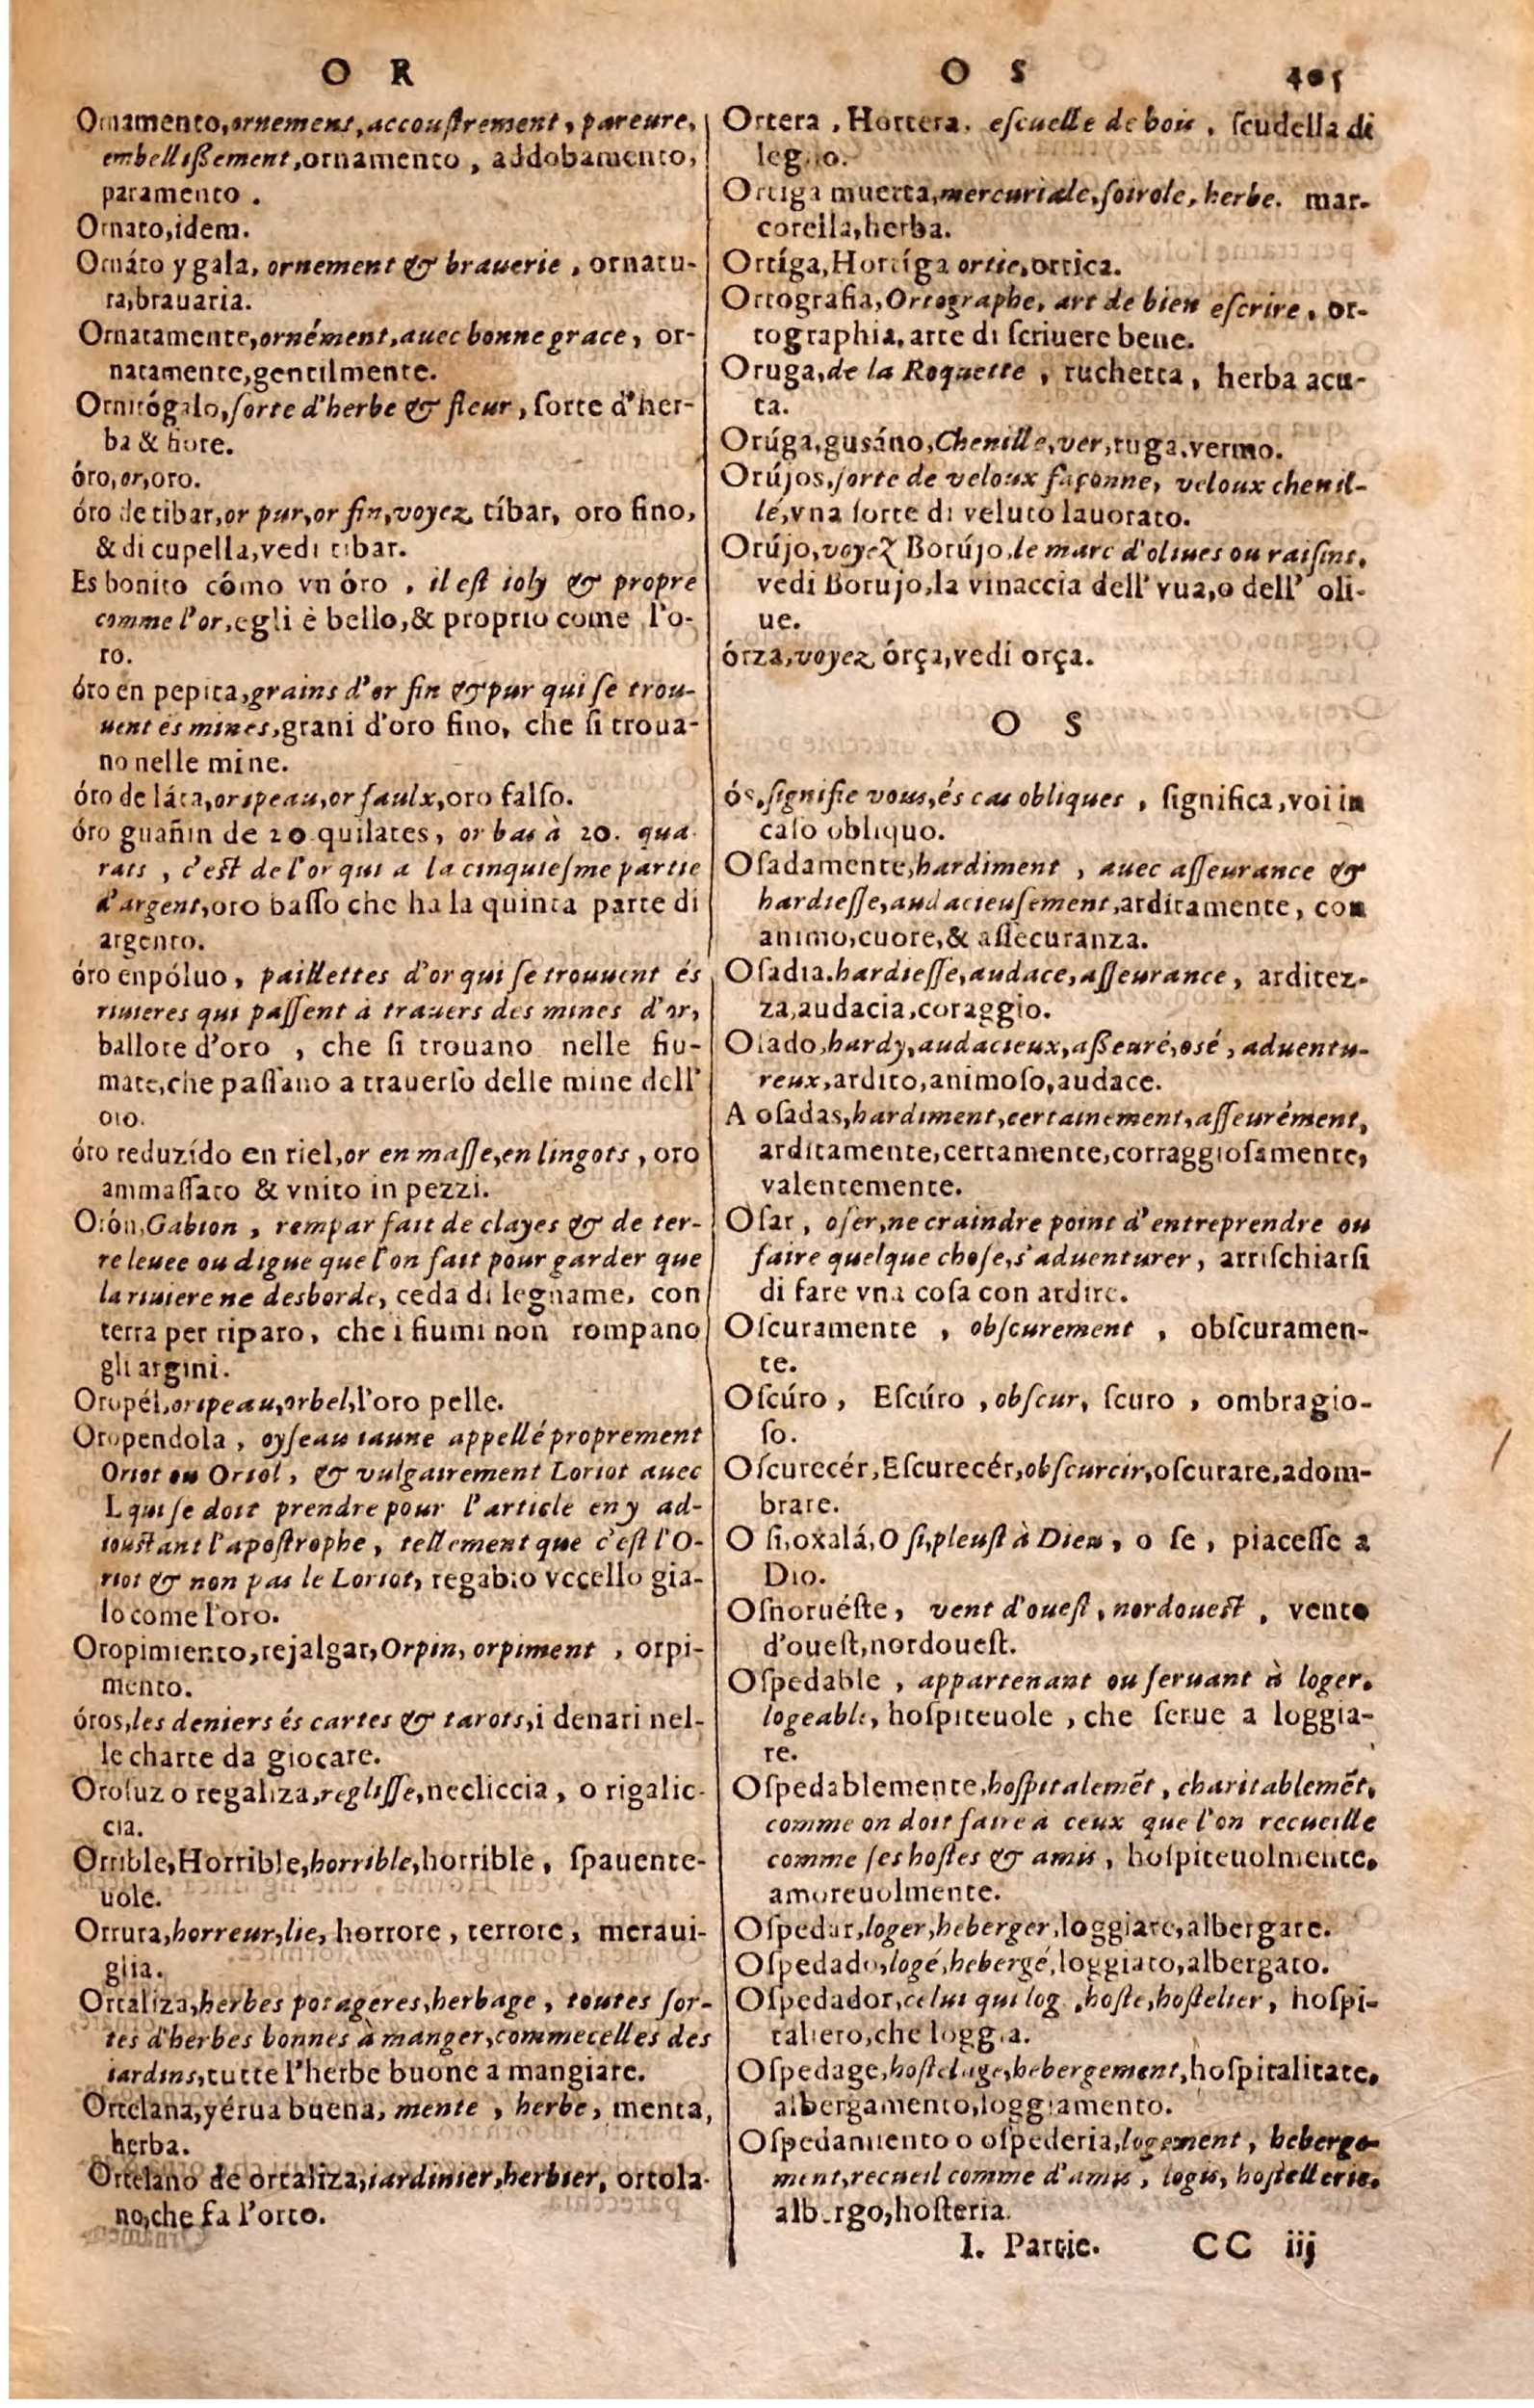 O R
Ornamento, ornement, accouſtrement, pareure,
embellißement, ornamento, addobamento,
paramento.
Ornato, idem.
Ornáto y gala, ornement & brauerie, ornatu-
ra, brauaria.
Ornatamente, ornément, auec bonne grace, or-
natamente, gentilmente.
Ornitógalo, ſorte d'herbe & fleur, ſorte d'her-
ba & fiore.
óro, or, oro.
óro de tibar, or pur, or fin, voyez tíbar, oro fino,
& di cupella, vedi tibar.
Es bonito cómo vn óro, il eſt ioly & propre
comme l'or, egli è bello, & proprio come l'o-
ro.
óro en pepita, grains d'or fin & pur qui ſe trou-
uent és mines, grani d'oro fino, che ſi troua-
no nelle mine.
óro de láta, oripeau, or faulx, oro falſo.
óro guañin de 20 quilates, or bas à 20. qua-
rats, c'eſt de l'or qui a la cinquieſme partie
d'argent, oro baſſo che ha la quinta parte di
argento.
óro enpóluo, paillettes d'or qui ſe trouuent és
riuieres qui paſſent à trauers des mines d'or,
ballote d'oro, che ſi trouano nelle fiu-
mate, che paſſano a trauerſo delle mine dell'
oro.
óro reduzído en riel, or en maſſe, en lingots, oro
ammaſſato & vnito in pezzi.
Orón, Gabion, rempar fait de clayes & de ter-
re leuee ou digue que l'on fait pour garder que
la riuiere ne desborde, ceda di legname, con
terra per riparo, che i fiumi non rompano
gli argini.
Oropél, oripeau, orbel, l'oro pelle.
Oropendola, oyſeau iaune appellé proprement
Oriot ou Oriol, & vulgairement Loriot auec
L qui ſe doit prendre pour l'article en y ad-
iouſtant l'apoſtrophe, tellement que c'eſt l'O-
riot & non pas le Loriot, regabio vccello gia-
lo come l'oro.
Oropimiento, rejalgar, Orpin, orpiment, orpi-
mento.
óros, les deniers és cartes & tarots, i denari nel-
le charte da giocare.
Oroſuz o regaliza, regliſſe, necliccia, o rigalic-
cia.
Orrible, Horrible, horrible, horrible, ſpauente-
uole.
Orrura, horreur, lie, horrore, terrore, meraui-
glia.
Ortaliza, herbes potageres, herbage, toutes ſor-
tes d'herbes bonnes à manger, comme celles des
iardins, tutte l'herbe buone a mangiare.
Ortelana, yérua buena, mente, herbe, menta,
herba.
Ortelano de ortaliza, iardinier, herbier, ortola-
no, che fa l'orto.
O S 405
Ortera, Hortera, eſcuelle de bois, ſcudella di
legno.
Ortiga muerta, mercuriale, foirole, herbe. mar-
corella, herba.
Ortíga, Hortíga ortie, ortica.
Ortografia, Ortographe, art de bien eſcrire, or-
tographia, arte di ſcriuere bene.
Oruga, de la Roquette, ruchetta, herba acu-
ta.
Orúga, guſáno, Chenille, ver, ruga, vermo.
Orújos, ſorte de veloux façonne, veloux chenil-
lé, vna ſorte di veluto lauorato.
Orújo, voyez Borújo, le marc d'oliues ou raiſins,
vedi Borujo, la vinaccia dell' vua, o dell' oli-
ue.
órza, voyez órça, vedi orça.
O S
ós, ſignifie vous, és cas obliques, ſignifica, voi in
caſo obliquo.
Oſadamente, hardiment, auec aſſeurance &
hardieſſe, audacieuſement, arditamente, con
animo, cuore, & aſſecuranza.
Oſadia. hardieſſe, audace, aſſeurance, arditez-
za, audacia, coraggio.
Oſado, hardy, audacieux, aßeuré, osé, aduentu-
reux, ardito, animoſo, audace.
A oſadas, hardiment, certainement, aſſeurément,
arditamente, certamente, corraggioſamente,
valentemente.
Oſar, oſer, ne craindre point d'entreprendre ou
faire quelque choſe, s'aduenturer, arriſchiarſi
di fare vna coſa con ardire.
Oſcuramente, obſcurement, obſcuramen-
te.
Oſcúro, Eſcúro, obſcur, ſcuro, ombragio-
ſo.
Oſcurecér, Eſcurecér, obſcurcir, oſcurare, adom-
brare.
O ſi, oxalá, O ſi, pleuſt à Dieu, o ſe, piaceſſe a
Dio.
Oſnoruéſte, vent d'oueſt, nordoueſt, vento
d'oueſt, nordoueſt.
Oſpedable, appartenant ou ſeruant à loger,
logeable, hoſpiteuole, che ſerue a loggia-
re.
Oſpedablemente, hoſpitalemēt, charitablemēt,
comme on doit faire à ceux que l'on recueille
comme ſes hoſtes & amis, hoſpiteuolmente,
amoreuolmente.
Oſpedar, loger, heberger, loggiare, albergare.
Oſpedado, logé, hebergé, loggiato, albergato.
Oſpedador, celui qui log, hoſte, hoſtelier, hoſpi-
taliero, che loggia.
Oſpedage, hoſtelage, hebergement, hoſpitalitate,
albergamento, loggiamento.
Oſpedamiento o oſpederia, logement, heberge-
ment, recueil comme d'amis, logis, hoſtellerie,
albergo, hoſteria.
I. Partie. CC iij